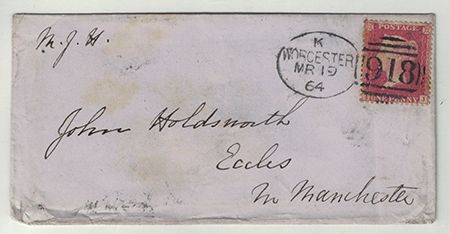 M. J. H.
K
WORCESTER
MR 19
64
POSTAGE
918
ONE PENNY
John Holdsworth
Eccles
Nr Manchester